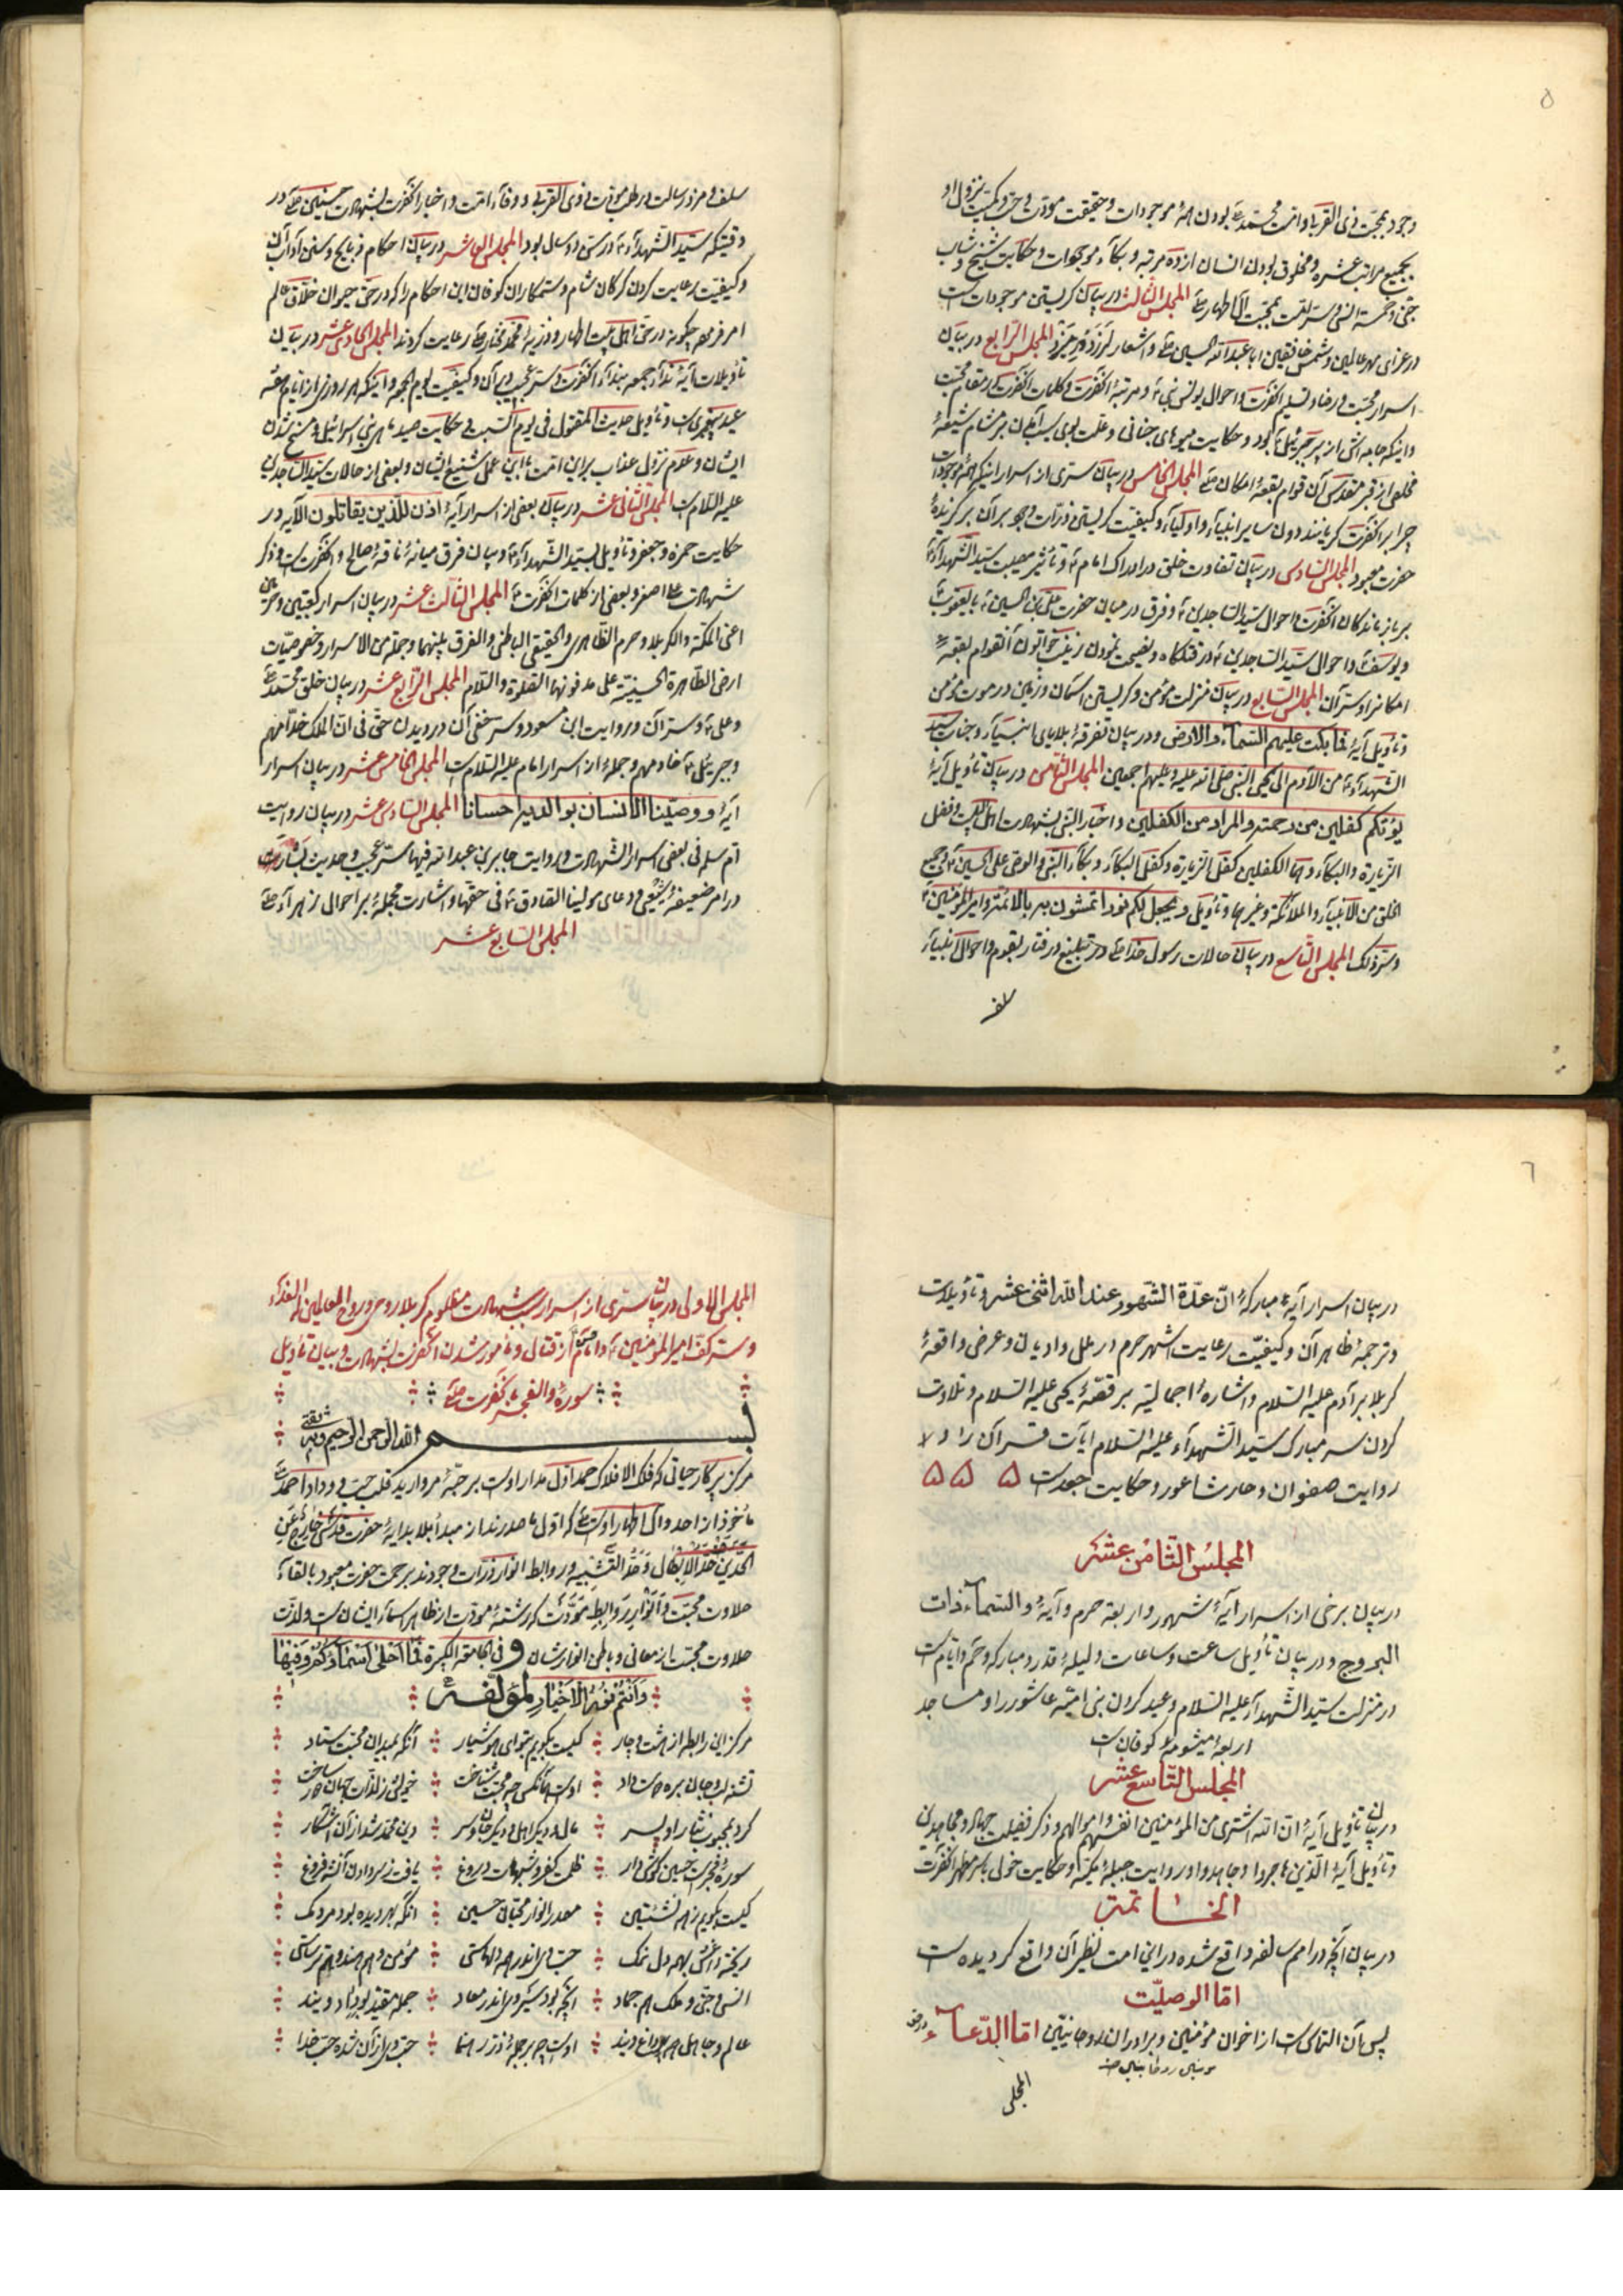 ۵
وجود بمحبّت ذی القربا و امّت محمّد بودن همهٔ موجودات و حقیقت مودّت و حبّ و کمیّت نزول او
بجمیع مراتب عشره و مخلوق بودن انسان از ده مرتبه و بکآء موجودات و حکایت شیخ و شاب
المجلس الثالث در بیان کریستن موجودات است
در عزای مهر عالمین و شمس خافقین ابا عبدالله الحسین و اشعار المجلس الرّابع در بیان
اسرار محبّت و رضا و تسلیم آنحضرت و احوال یونس نبی و مرتبهٔ آنحضرت و کلمات آنحضرت در مقام محبّت
و اینکه جامه اش از پر جبرئیل بود و حکایت میوه های جنانی و علّت بوی سیب
مخلص از قبر مقدّس آن قوام بقعهٔ امکان المجلس الخامس در بیان سرّی از اسرار اینکه همهٔ موجودات
چرا بر آنحضرت کریانند دون سایر انبیآء و اولیآء و کیفیّت کریستن ذرّات وجود بر آن برکزیدهٔ
حضرت معبود المجلس السّادس در بیان تفاوت خلق در ادراک امام و تأثیر مصیبت سیّد الشّهدآء
بر بازماندکان آنحضرت و احوال سیّد السّاجدین و فرق در میان حضرت علی بن الحسین با یعقوب
و یوسف و احوال سیّد السّاجدین در قتلکاه و نصیحت نمودن زینب خواتون آنقوام بقعهٔ
امکانرا و سرّ آن المجلس السّابع در بیان منزلت مؤمن و کریستن آسمان و زمین در موت مؤمن
و تأویل آیهٔ فما بکت علیهم السّمآء و الارض و در بیان تفرقهٔ بلایای انبیآء و جناب سیّد
الشّهدآء من الآدم الی یحیی النّبی صلّی الله علیه و علیهم اجمعین المجلس الثّامن در بیان تأویل آیهٔ
یؤتکم کفلین من رحمته و المراد من الکفلین و اخبار النّبی بشهادت اهل البیت و فضل
الزّیارة و البکآء و هما الکفلین کفل الزیارة و کفل البکآء و بکآء النّبی و الوصی علی الحسین و جمیع
الخلق من الانبیآء و الملائکة و غیرها و تأویل و یجعل لکم نوراً تمشون به بالائمّة و امیر المؤمنین
و سرّ ذلک المجلس التّاسع در بیان حالات رسول خدا در تبلیغ و رفتار بقوم و احوال انبیآء
سلف
سلف و مزد رسالت در طلب مودّت ذوی القربی و وفآء امّت و اخبار آنحضرت بشهادت حسین در
وقتیکه سیّد الشّهدآء در سنّ دو سال بود المجلس العاشر در بیان احکام ذبایح و سنن و آداب آن
و کیفیّت رعایت کردن کرکان شام و ستمکاران کوفان این احکام را که در حقّ حیوان خلّاق عالم
امر فرمود چکونه در حقّ اهل بیت اطهار و ذریّهٔ محمّد مختار رعایت کردند المجلس الحادی عشر در بیان
تأویلات آیهٔ ندآء جمعه بندآء آنحضرت و سرّ عجیب در آن و کیفیّت یوم الجمعه و اینکه هر روزی از ایّام جمعه
عید و تأویل حدیث المقتول فی یوم السّبت و حکایت صید ماهی بنی اسرائیل و مسخ شدن
ایشان و عدم نزول عذاب بر این امّت باین عمل شنیع ایشان و بعضی از حالات سیّد السّاجدین
علیه السّلام است المجلس الثّانی عشر در بیان بعضی از اسرار آیهٔ اذن للّذین یقاتلون الآیه در
حکایت حمزه و جعفر و تأویل بسیّد الشّهدآء و بیان فرق میانهٔ ناقهٔ صالح و آنحضرت است و ذکر
شهادت علی اصغر و بعضی از کلمات آنحضرت المجلس الثّالث عشر در بیان اسرار کعبتین و حرمین
اعنی المکّة و الکربلا و حرم الظّاهری و الحقیقی الباطنی و الفرق بینهما و جملة من الاسرار و خصوصیّات
ارض الطّاهرة الحسینیّة علی مدفونها الصّلوة و السّلام المجلس الرّابع عشر در بیان خلق محمّد
و علی و سرّ آن و روایت ابن مسعود و سرّ خفی آن در دیدن حقّ و فی انّ الملک خدّامهم
و جبرئیل خادمهم و جملهٔ از اسرار امام علیه السّلام است المجلس الخامس عشر در بیان اسرار
آیهٔ و وصّینا الانسان بوالدیه احسانا المجلس السّادس عشر در بیان روایت
امّ سلمه فی بعضی اسرار الشّهادت و روایت جابر بن عبدالله فیها سرّ عجیب و حدیث بشارت
در امر ضعیفهٔ شیعی و دعای مولینا الصّادق فی حقّها و اشارت مجملهٔ بر احوال زهرآء
المجلس السّابع عشر
٦
در بیان اسرار آیهٔ مبارکهٔ انّ عدّة الشّهور عند اللّه اثنی عشر و تأویلات
و ترجمهٔ ظاهر آن و کیفیّت رعایت اشهر حرم در ملل و ادیان و عرض واقعهٔ
کربلا بر آدم علیه السّلام و اشارهٔ اجمالیّه بر قصّهٔ یحیی علیه السّلام و تلاوت
کردن سر مبارک سیّد الشّهدآء علیه السّلام آیات قرآن را و
روایت صفوان و حارث اعور و حکایت جعد است ۵ ۵ ۵
المجلس الثّامن عشر
در بیان برخی از اسرار آیهٔ شهور و اربعه حرم و آیهٔ و السّمآء ذات
البروج و در بیان تأویل ساعت و ساعات و لیلهٔ قدر و مبارکه و حم و ایّام است
در منزلت سیّد الشّهدآء علیه السّلام و عید کردن بنی امیّه عاشور را و مساجد
اربعهٔ میشومهٔ کوفان است
المجلس التّاسع عشر
در بیان تأویل آیهٔ انّ الله اشتری من المؤمنین انفسهم و اموالهم و ذکر فضیلت جهاد و مجاهدین
و تأویل آیهٔ الّذین هاجروا و جاهدوا و روایت جبلهٔ مکیّه و حکایت خولی با سر مطهّر آنحضرت
الخاتمة
در بیان آنچه در امم سالفه واقع شده در این امت نظیر آن واقع کردیده است
امّا الوصیّت
پس بآن التماس است از اخوان مؤمنین و برادران روحانیّین امّا الدّعآء
المجلس
المجلس الاولی در بیان سرّی از اسرار سبب شهادت مظلوم کربلا روحی و روح العالمین له الفدآء
و سرّ کفّ امیر المؤمنین و امام از قتال و مأمور شدن آنحضرت بشهادت و بیان تأویل
سورهٔ والفجر بآنحضرت
بسم الله الرحمن الرحیم وبه ثقتی
مرکز پرکار حیاتی که فلک الافلاک حمد اوّل مدار اوست بر حبّهٔ مروارید فلک حبّ و وداد احمد
مأخوذ از احد و آل اطهار اوست که اوّل ما صدرند از مبدأ بلا بدایهٔ حضرت قدسی خارج عن
الحدّین حدّ الابطال و حدّ التّشبیه و روابط انوار ذرّات وجودند بر حمت حضرت معبود بالقآء
حلاوت محبّت و انوار بر روابط مودّت که رشتهٔ مودّت از ظاهر اسمآء ایشان است و لذّت
حلاوت محبّت از معانی و باطن انوارشان و فی الجامعة الکبیرة فما احلی اسمآؤکم و فیها
وانتم نور الاخیار لمؤلّفه
مرکز این رابطه از هشت و چار ؞ کیست بکویم بتو ای هوشیار ؞ آنکه بمیدان محبّت ستاد
تشنه لب و جان بره دوست داد ؞ اوست که محبّت شناخت ؞
کرد بمحبوب نثار او پسر ؞ مال و دیکر اهل و دیکر جان و سر ؞ دین محمّد شد از آن آشکار
سورهٔ فجر است حسین کوش دار ؞ ظلمت کفر و شبهات دروغ ؞ یافت ز سر دادن آنشه فروغ
کیست بکویم زهمه نشئتین ؞ مصدر انوار محبّان حسین ؞ آنکه بهر دیده بود مردمک
ریخته بهمه دل نمک ؞ حبّ وی اندر همه ؞ مؤمن و هم هندو هم
انس و جنّ و ملک هم جماد ؞ آنچه بود سیر وی اندر معاد ؞ جمله
عالم و جاهل ؞ اوست چو بر جملهٔ ذرّه رهنما ؞ حبّ وی از آن شده حبّ خدا